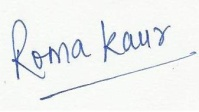 Roma Kaur